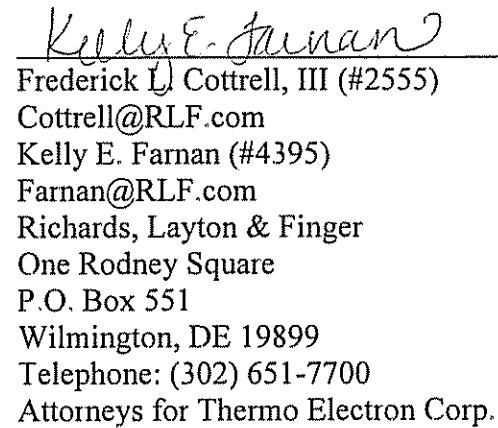 Kelly E. Farnan
Frederick L. Cottrell, III (#2555)
Cottrell@RLF.com
Kelly E. Farnan (#4395)
Farnan@RLF.com
Richards, Layton & Finger
One Rodney Square
P.O. Box 551
Wilmington, DE 19899
Telephone: (302) 651-7700
Attorneys for Thermo Electron Corp.